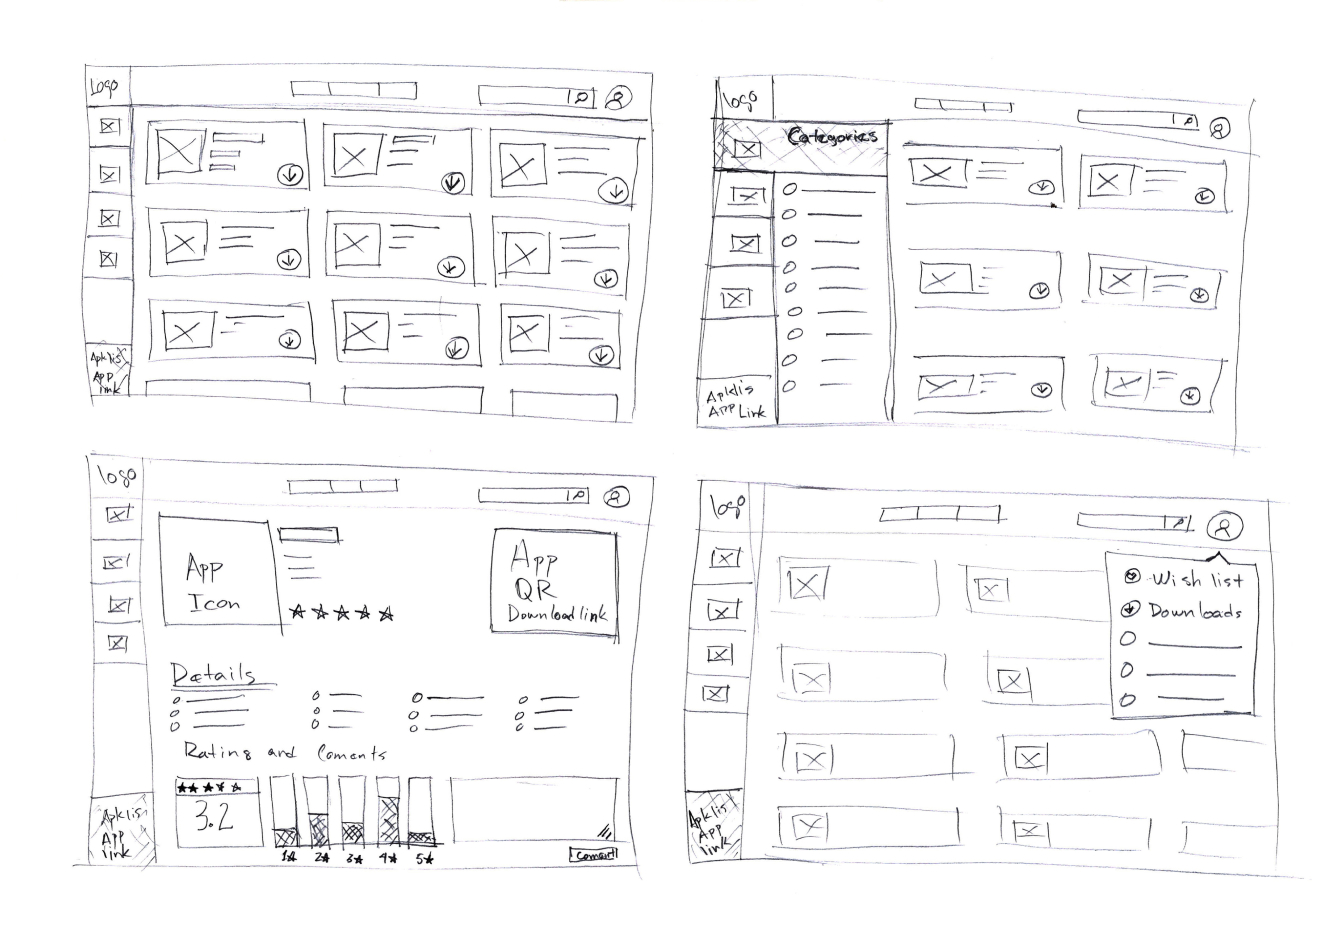 Logo
Apklis
App
link
logo
Categories
Apklis
App Link
logo
App
Icon
App
QR
Download link
Details
Rating and Coments
3.2
1★ 2★ 3★ 4★ 5★
Coment
Apklis
App
link
logo
Wish list
Downloads
Apklis
App
link